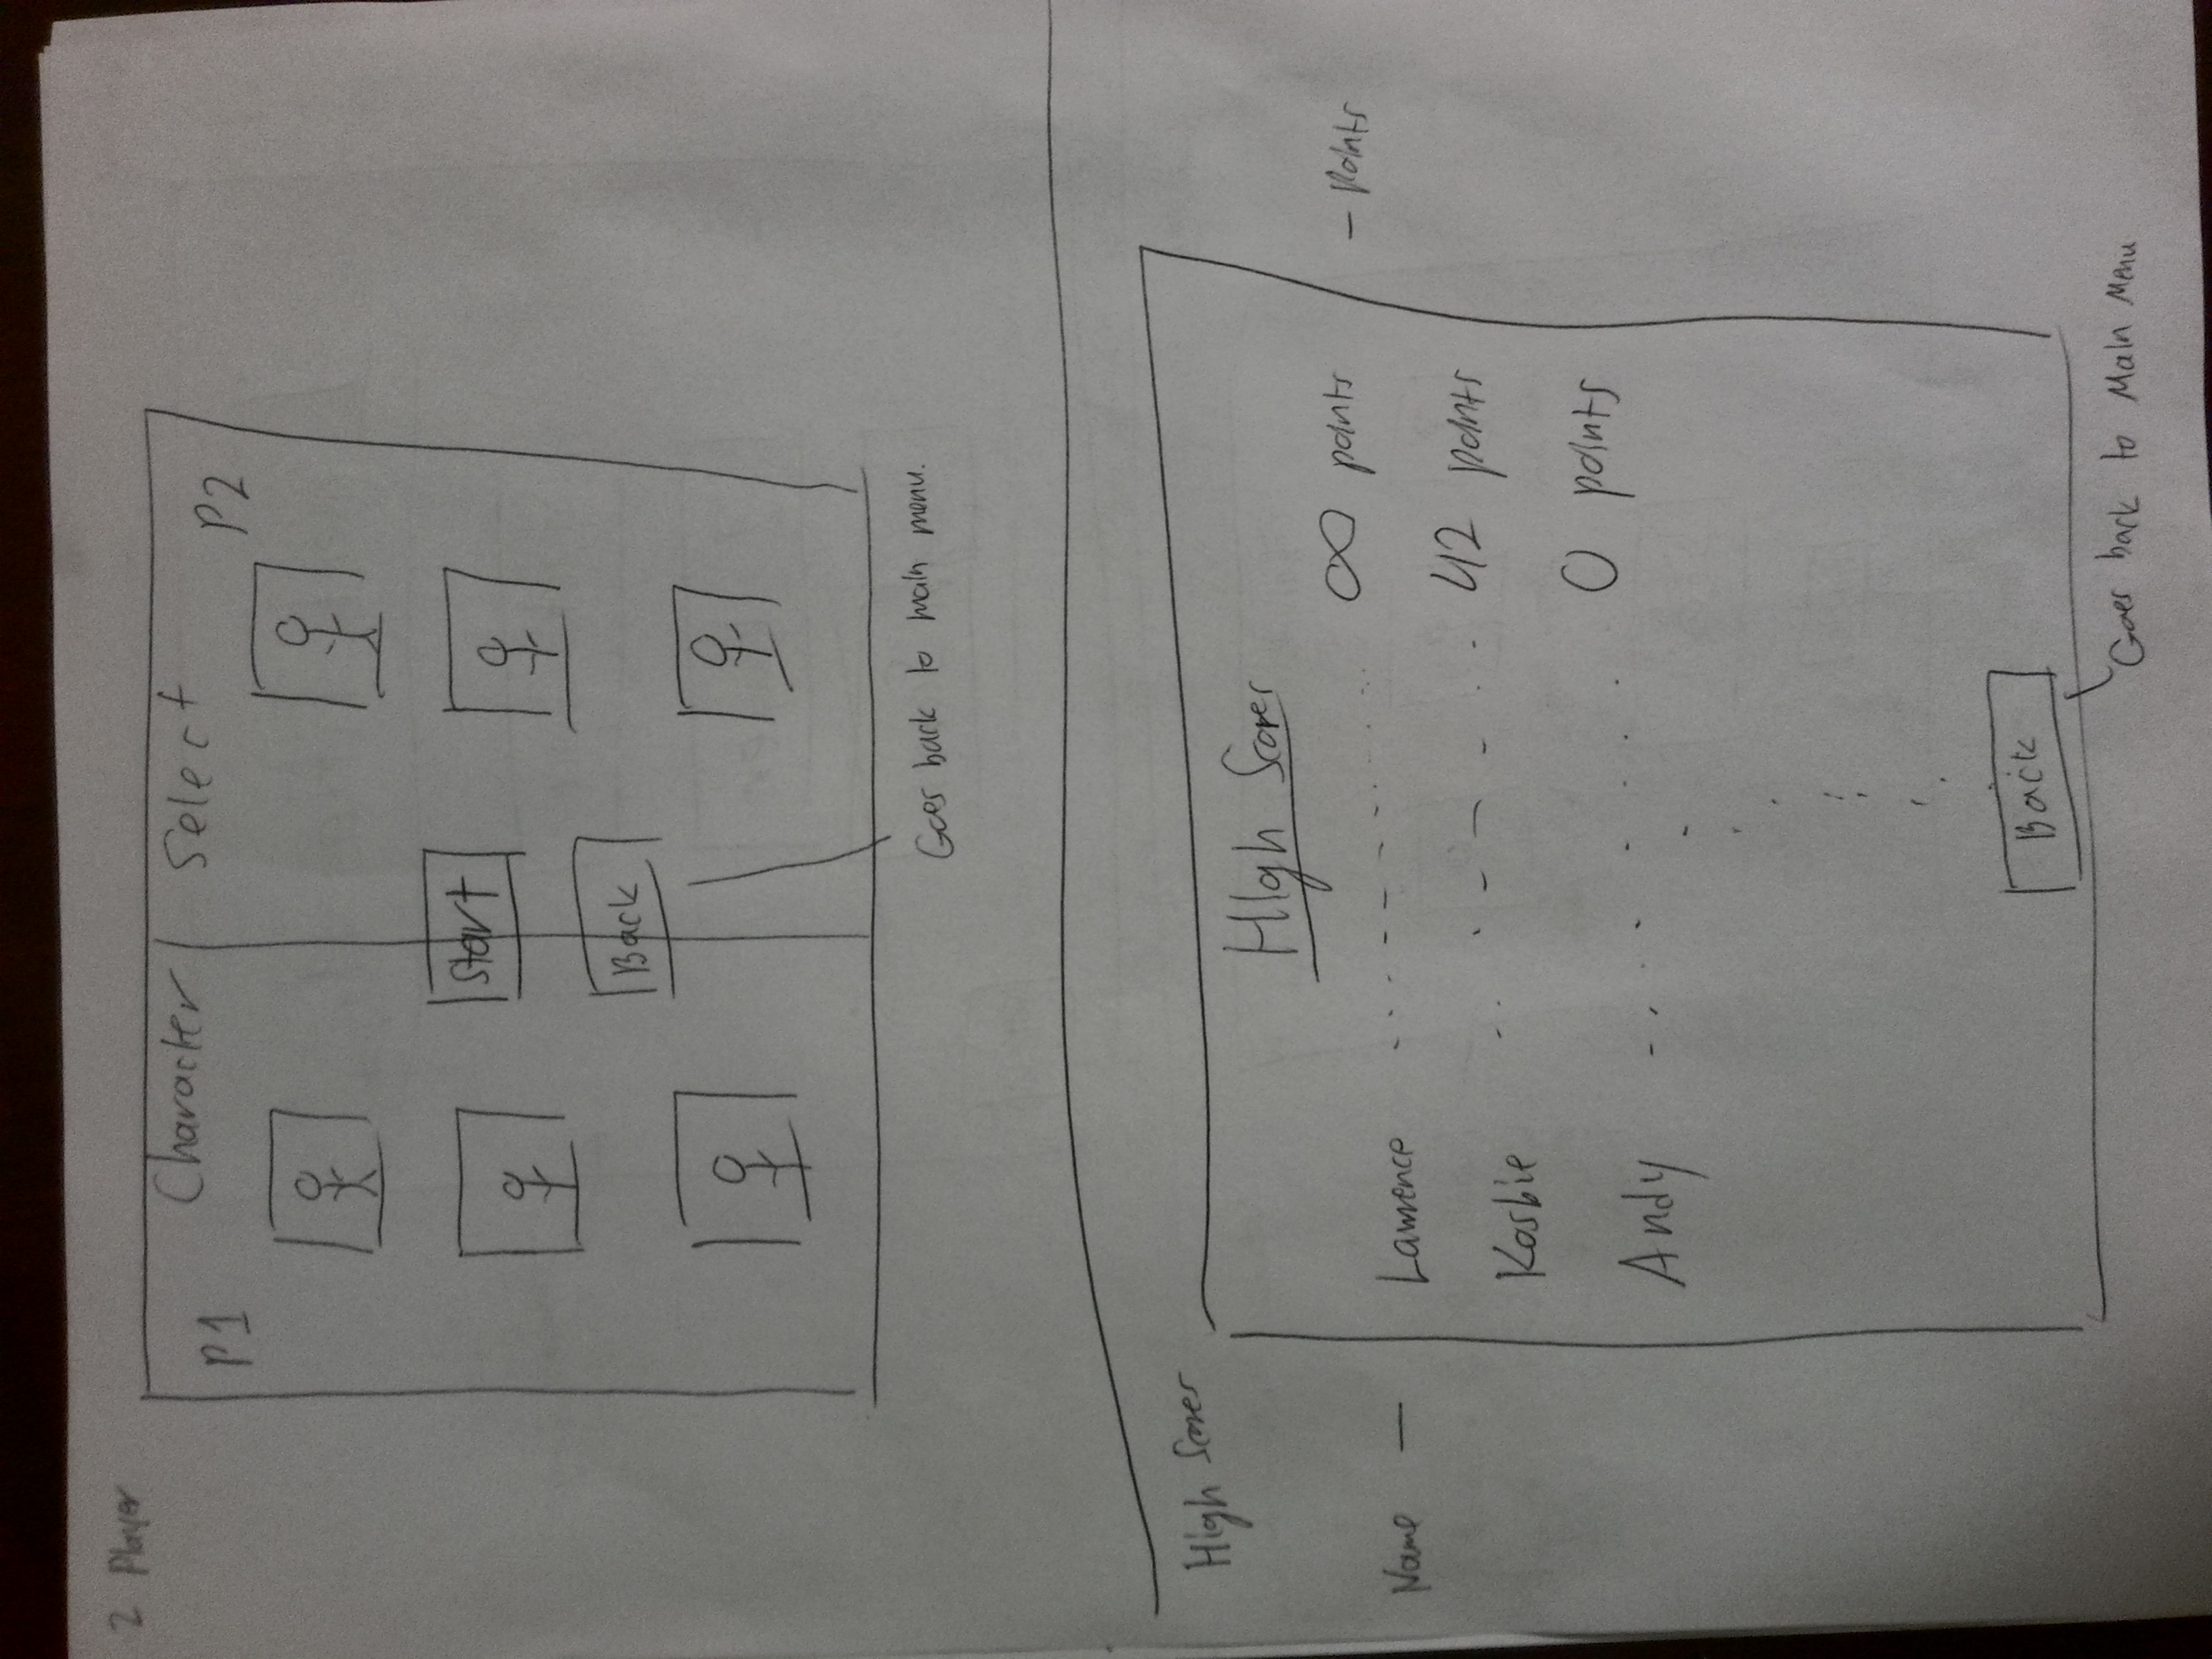 2 Player
Character Select
P1 P2
Start
Back
Goes back to main menu.
High Scores
High Scores
Lawrence ∞ points
Name — — Points
Kosbie 42 points
Andy 0 points
Back
Goes back to Main Menu